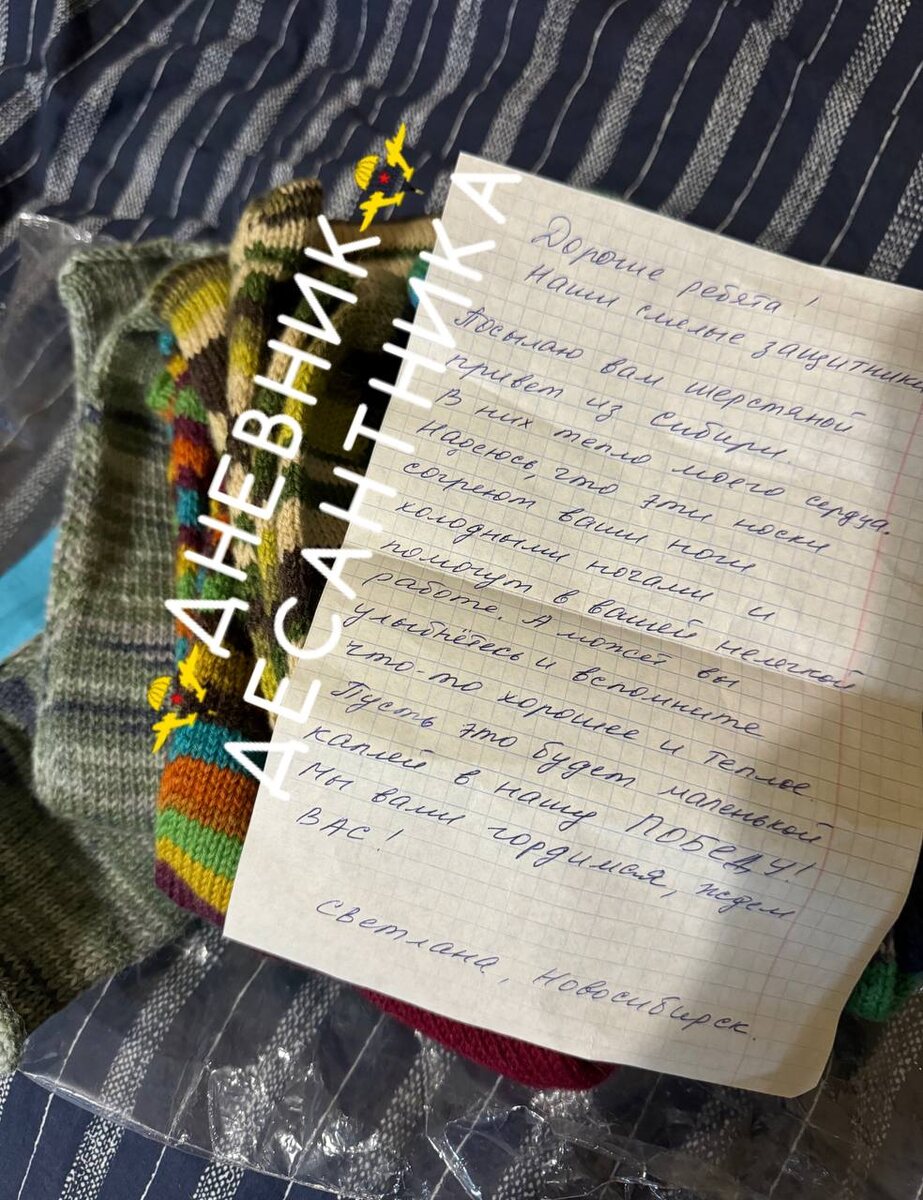 ДНЕВНИК
ДЕСАНТНИКА
Дорогие ребята!
Наши смелые защитники
Посылаю вам шерстяной
привет из Сибири.
В них тепло моего сердца.
Надеюсь, что эти носки
согреют ваши ноги
холодными ночами и
помогут в вашей нелёгкой
работе. А может вы
улыбнётесь и вспомните
что-то хорошее и теплое.
Пусть это будет маленькой
каплей в нашу ПОБЕДУ!
Мы вами гордимся, ждем
ВАС!
Светлана, Новосибирск